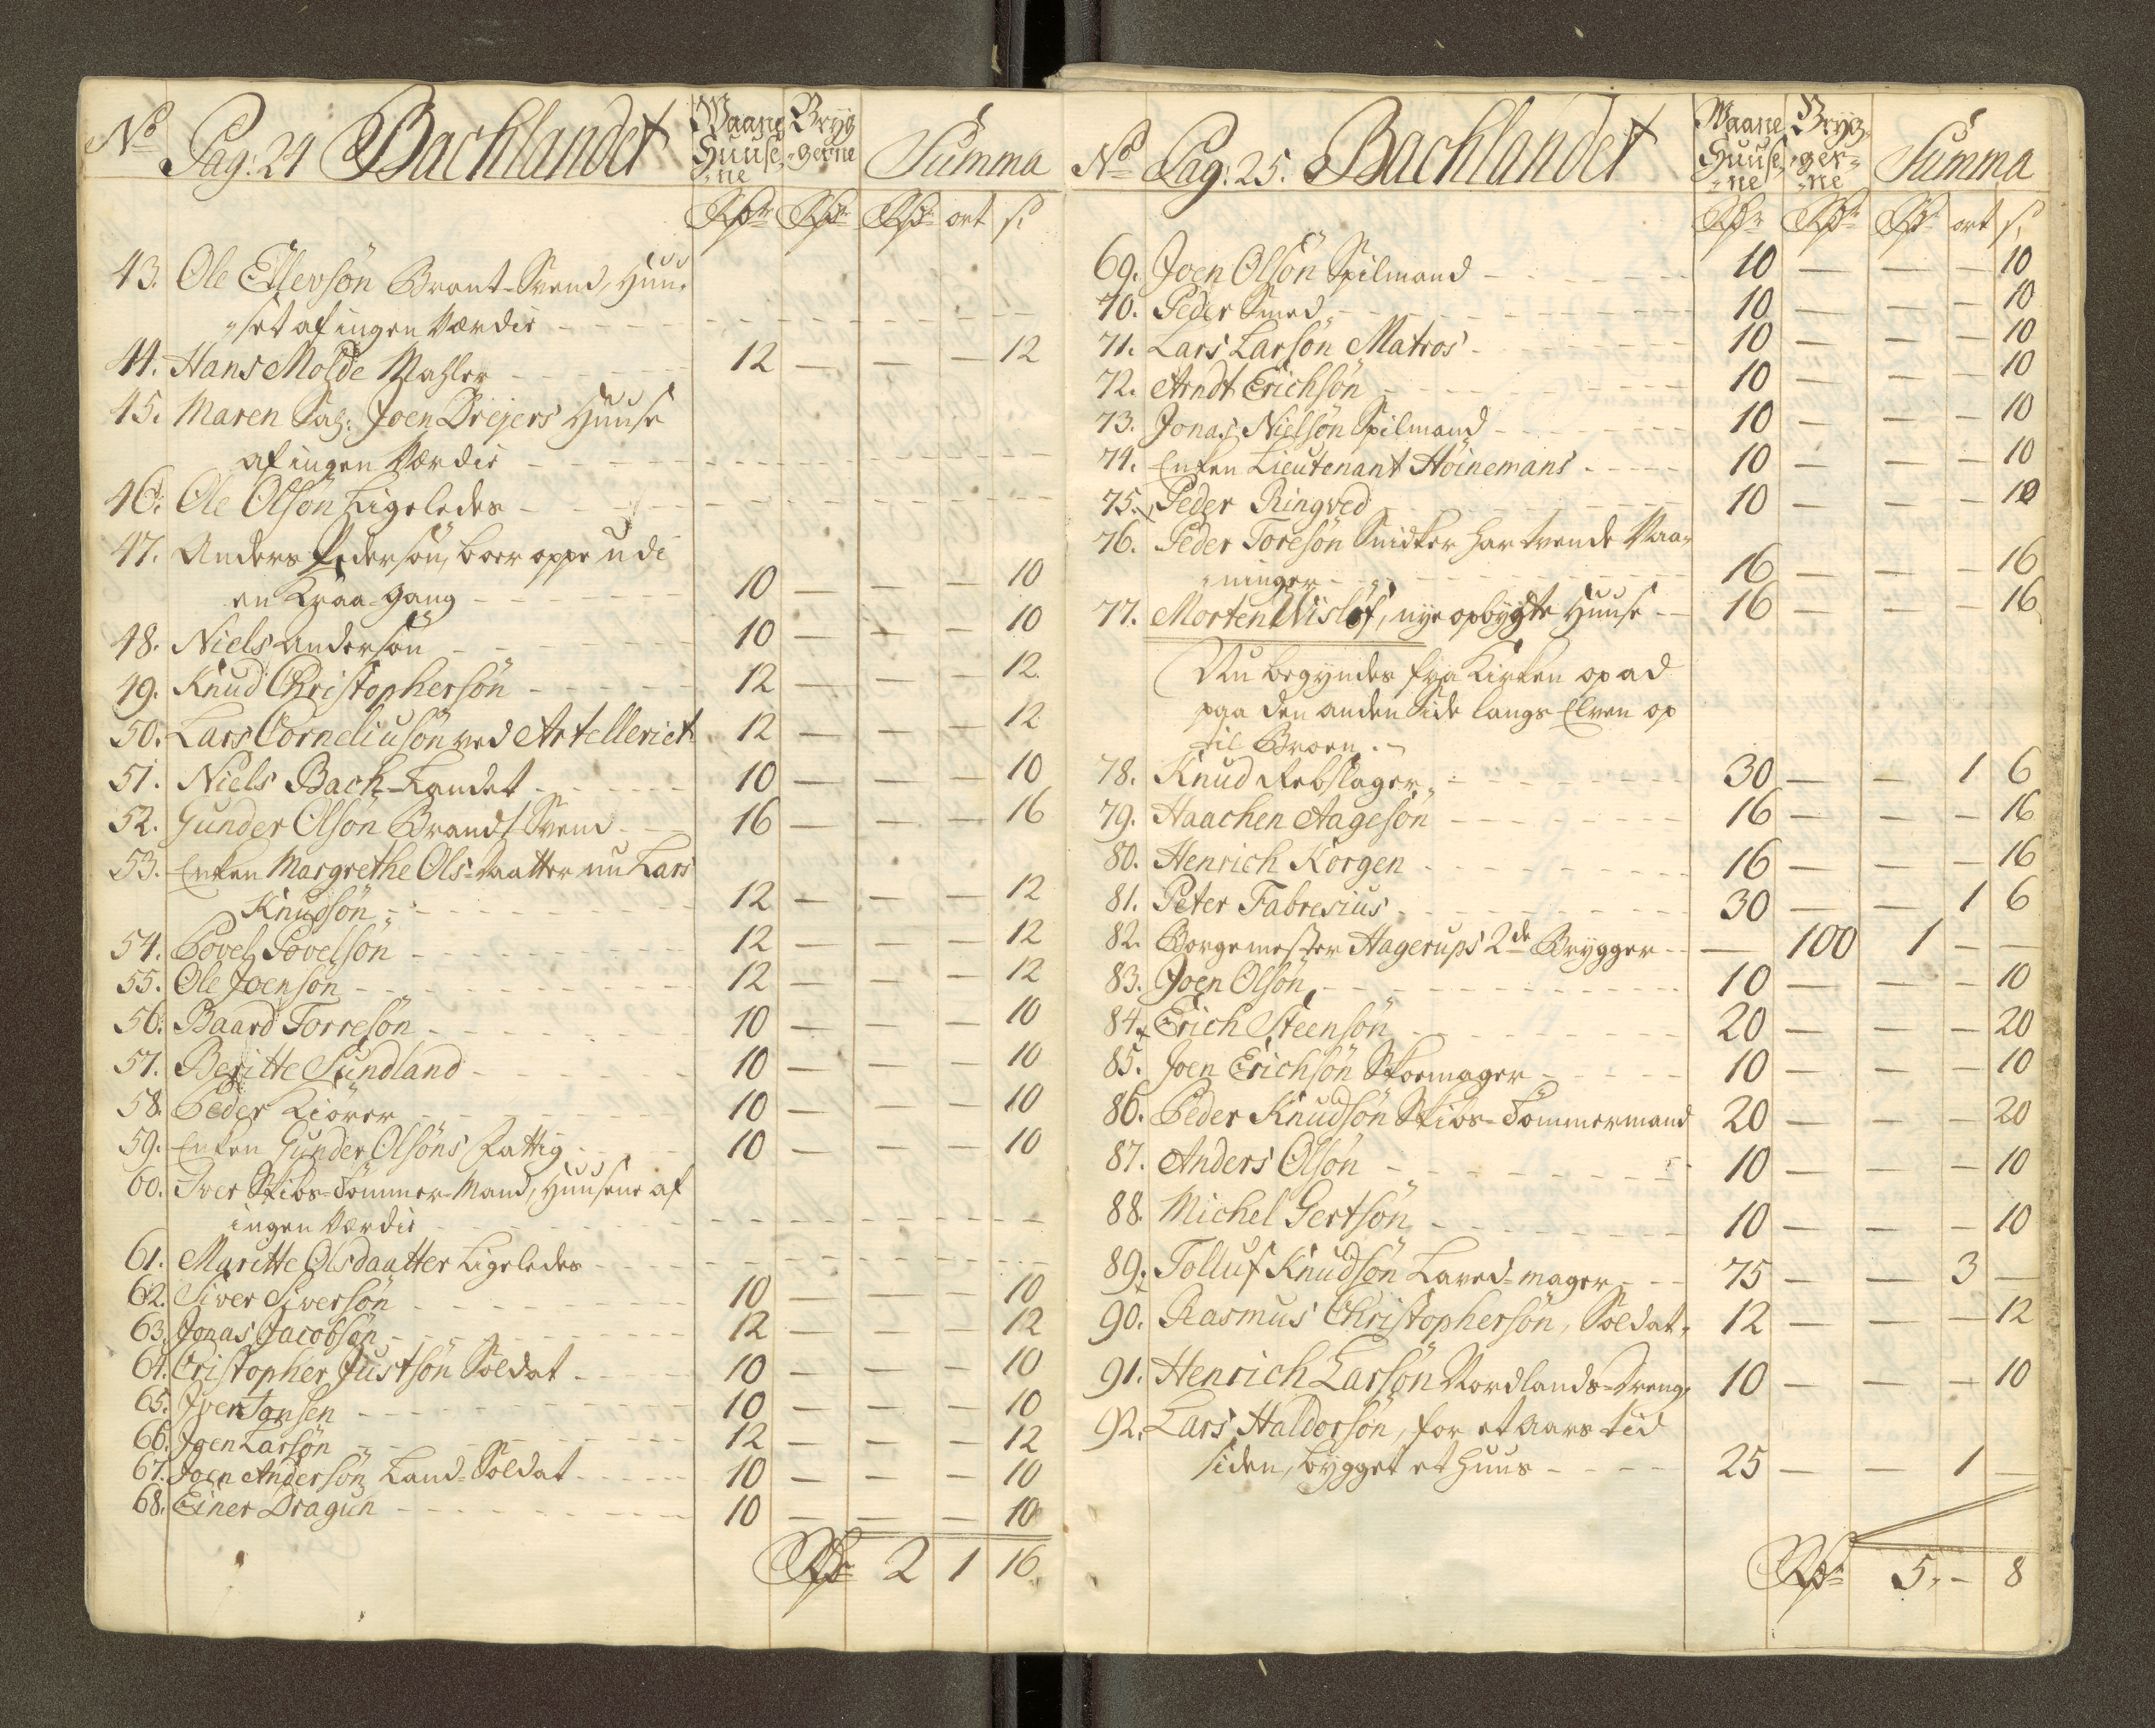 No Pag: 24 Bachlandet Waane Huuse-ne Bryg-gerne Summa
Rdr Rdr Rdr ort s
43. Ole Ellevsön Brant-Svend, Huu-
set af ingen Værdie
44. Hans Molde Mahler 12 — — — 12
45. Maren Sal: Joen Drejers Huuse
af ingen Værdie
46. Ole Olsön Ligeledes
47. Anders Pedersön, boer oppe udi
en Kraa-Gang 10 — — — 10
48. Niels Andersön 10 — — — 10
49. Knud Christophersön 12 — — — 12.
50. Lars Corneliusön ved Artelleriet 12 — — — 12
51. Niels Bach-Landet 10 — — — 10
52. Gunder Olsön Brandt Svend 16 — — — 16
53. Enken Margrethe Ols-Daatter nu Lars
Knudsön 12 — — — 12
54. Povel Povelsön 12 — — — 12
55. Ole Joensön 12 — — — 12
56. Baard Torresön 10 — — — 10
57. Beritte Sundland 10 — — — 10
58. Peder Kiörer 10 — — — 10
59. Enken Gunder Olsöns Fattig 10 — — — 10
60. Iver Skibs-Tömmer-Mand, Huusene af
ingen Værdie
61. Maritte Olsdaatter Ligeledes
62. Siver Siversön 10 — — — 10
63. Jonas Jacobsön 12 — — — 12
64. Cristopher Justsön Soldat 10 — — — 10
65. Iver Jonsen 10 — — — 10
66. Joen Larsön 12 — — — 12
67. Joen Andersön Land-Soldat 10 — — — 10
68. Einer Dragun 10 — — — 10
Rdr 2 1 16
No Pag: 25. Bachlandet Waane Huuse-ne Bryg-ger-ne Summa
Rdr Rdr Rdr ort s
69. Joen Olsön Spilmand 10 — — — 10
70. Peder Smed 10 — — — 10
71. Lars Larsön Matros 10 — — — 10
72. Arndt Erichsön 10 — — — 10
73. Jonas Nielsön Spilmand 10 — — — 10
74. Enken Lieutenant Höinemans 10 — — — 10
75. Peder Ringved 10 — — — 10
76. Peder Toresön Snidker har tvende Vaa-
ninger 16 — — — 16
77. Morten Wislöf, nye opbygte Huuse 16 — — — 16
Nu begyndes fra Kirken op ad
paa den anden Side langs Elven op
til Broen.
78. Knud Rebslager 30 — — 1 6
79. Haachen Aagesön 16 — — — 16
80. Henrich Korgen 16 — — — 16
81. Peter Fabresius 30 — — 1 6
82. Borgemester Hagerups 2de Brygger — 100 1 — —
83. Joen Olsön 10 — — — 10
84. Erich Steensön 20 — — — 20
85. Joen Erichsön Skoemager 10 — — — 10
86. Peder Knudsön Skibs-Tömmermand 20 — — — 20
87. Anders Olsön 10 — — — 10
88. Michel Gertsön 10 — — — 10
89. Tolluf Knudsön Laved-mager 75 — — 3 —
90. Rasmus Christophersön, Soldat 12 — — — 12
91. Henrich Larsön Nordlands-Dreng 10 — — — 10
92. Lars Haldorsön, for et Aars tid
siden, bygget et Huus 25 — — 1 —
Rdr 5. — 8